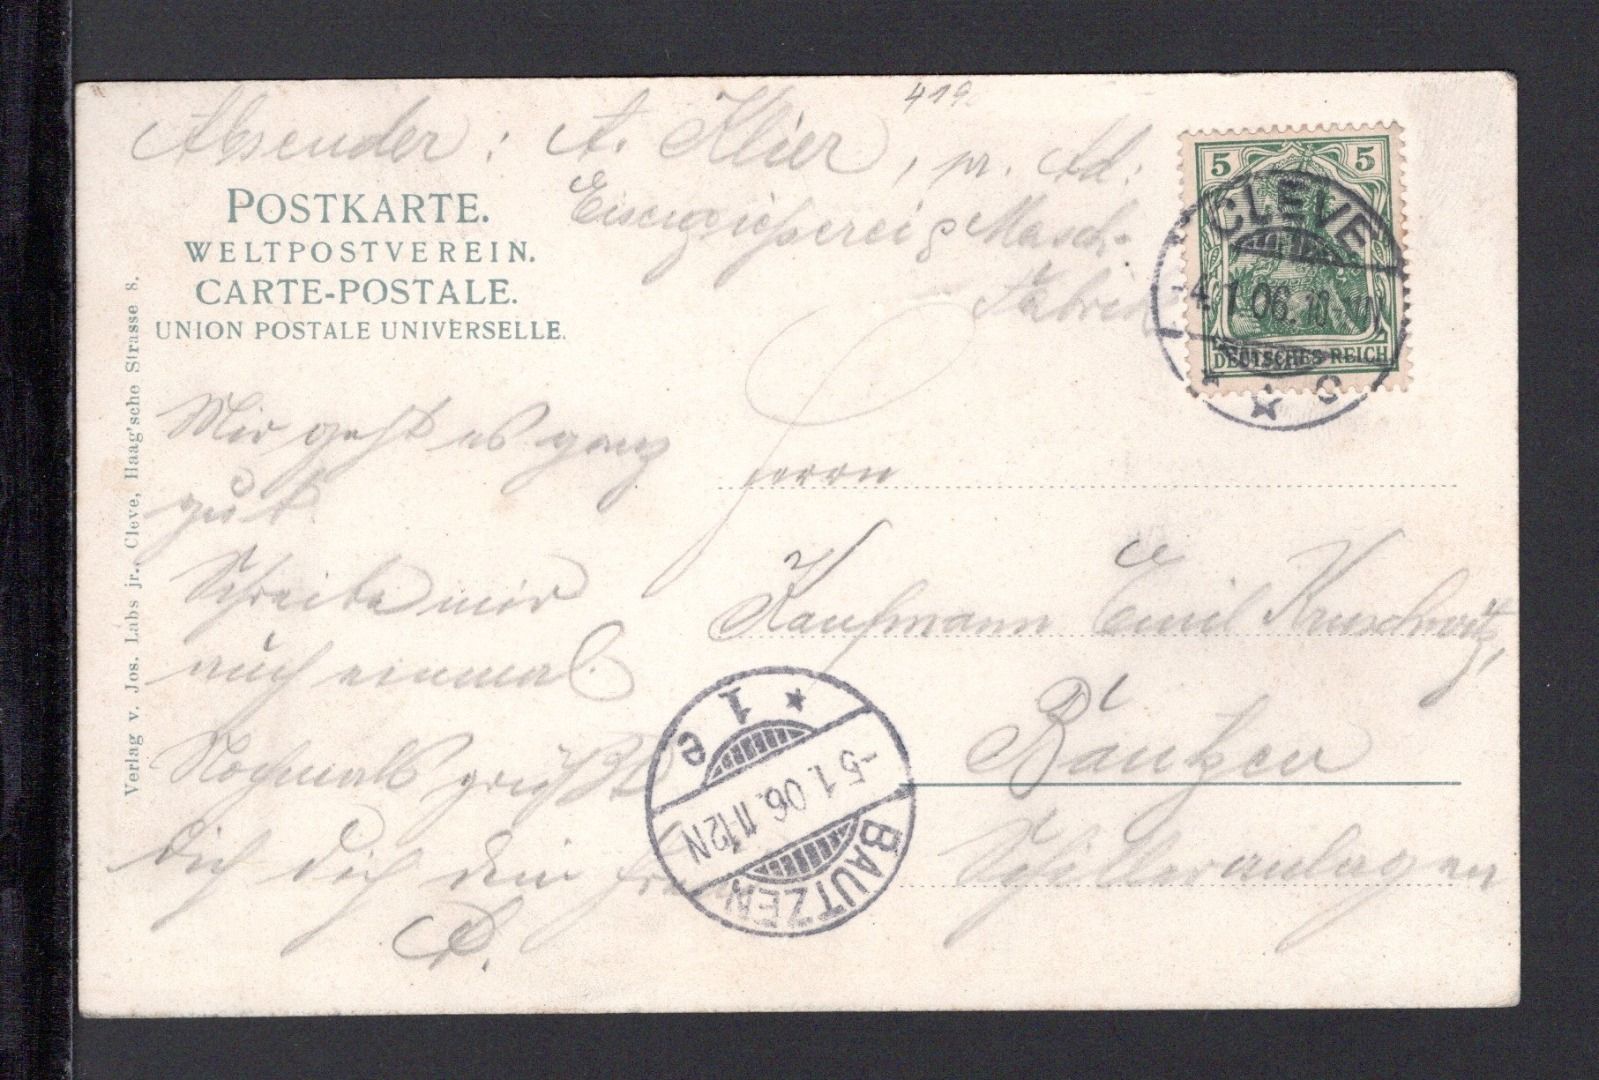 419.
Absender: A. Klier, pr. Ad:
Eisengiesserei & Masch.-
Fabrik
POSTKARTE.
WELTPOSTVEREIN.
CARTE-POSTALE.
UNION POSTALE UNIVERSELLE.
5 5
DEUTSCHES REICH
CLEVE
-4.1.06.10-
* * c
Mir geht es ganz
gut.
Schreibe mir
auch einmal.
Nochmals grüßt
Dich dein
A.
Herrn
Kaufmann Emil Kruschwitz,
Bautzen
Schilleranlagen
BAUTZEN
-5.1.06.11-12N
* 1 e
Verlag v. Jos. Labs jr., Cleve, Haag'sche Strasse 8.